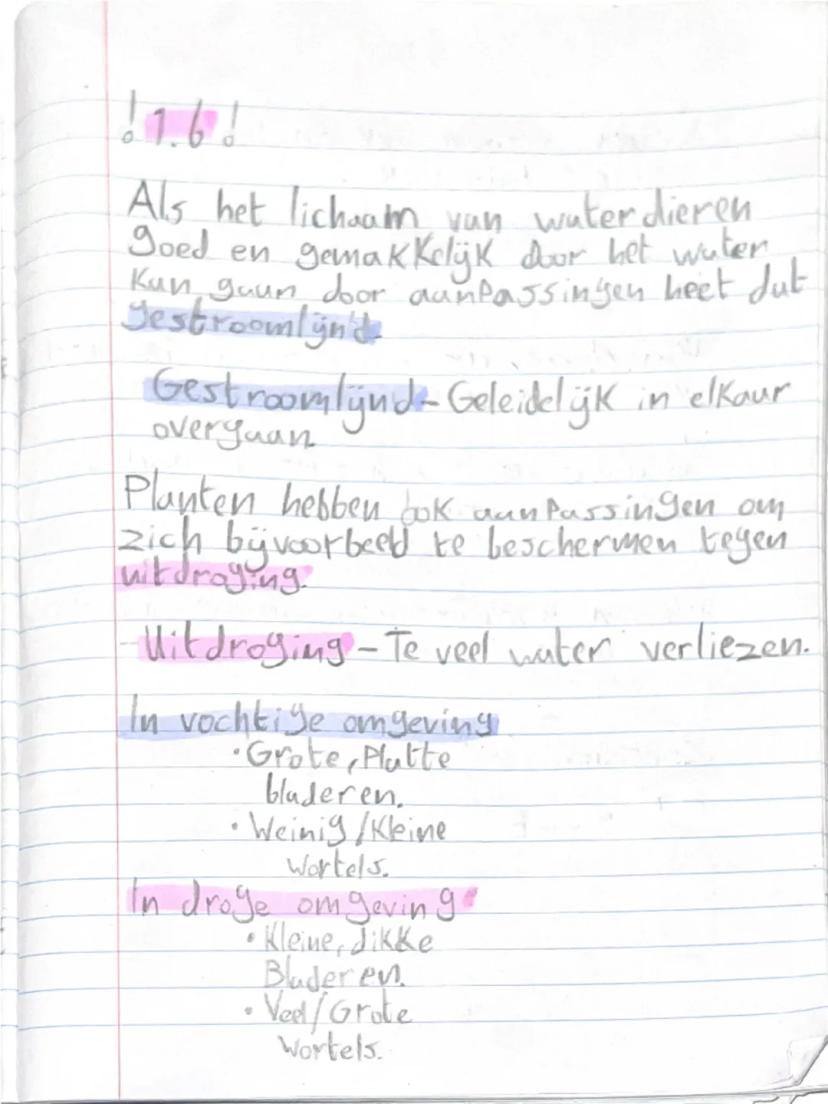 ! 1.6 !
Als het lichaam van waterdieren
goed en gemakkelijk door het water
kan gaan door aanpassingen heet dat
gestroomlijnd.
Gestroomlijnd - Geleidelijk in elkaar
overgaan
Planten hebben ook aanpassingen om
zich bijvoorbeeld te beschermen tegen
uitdroging.
Uitdroging - Te veel water verliezen.
In vochtige omgeving
• Grote, Platte
bladeren.
• Weinig/Kleine
wortels.
In droge omgeving
• Kleine, dikke
Bladeren.
• Veel/Grote
wortels.